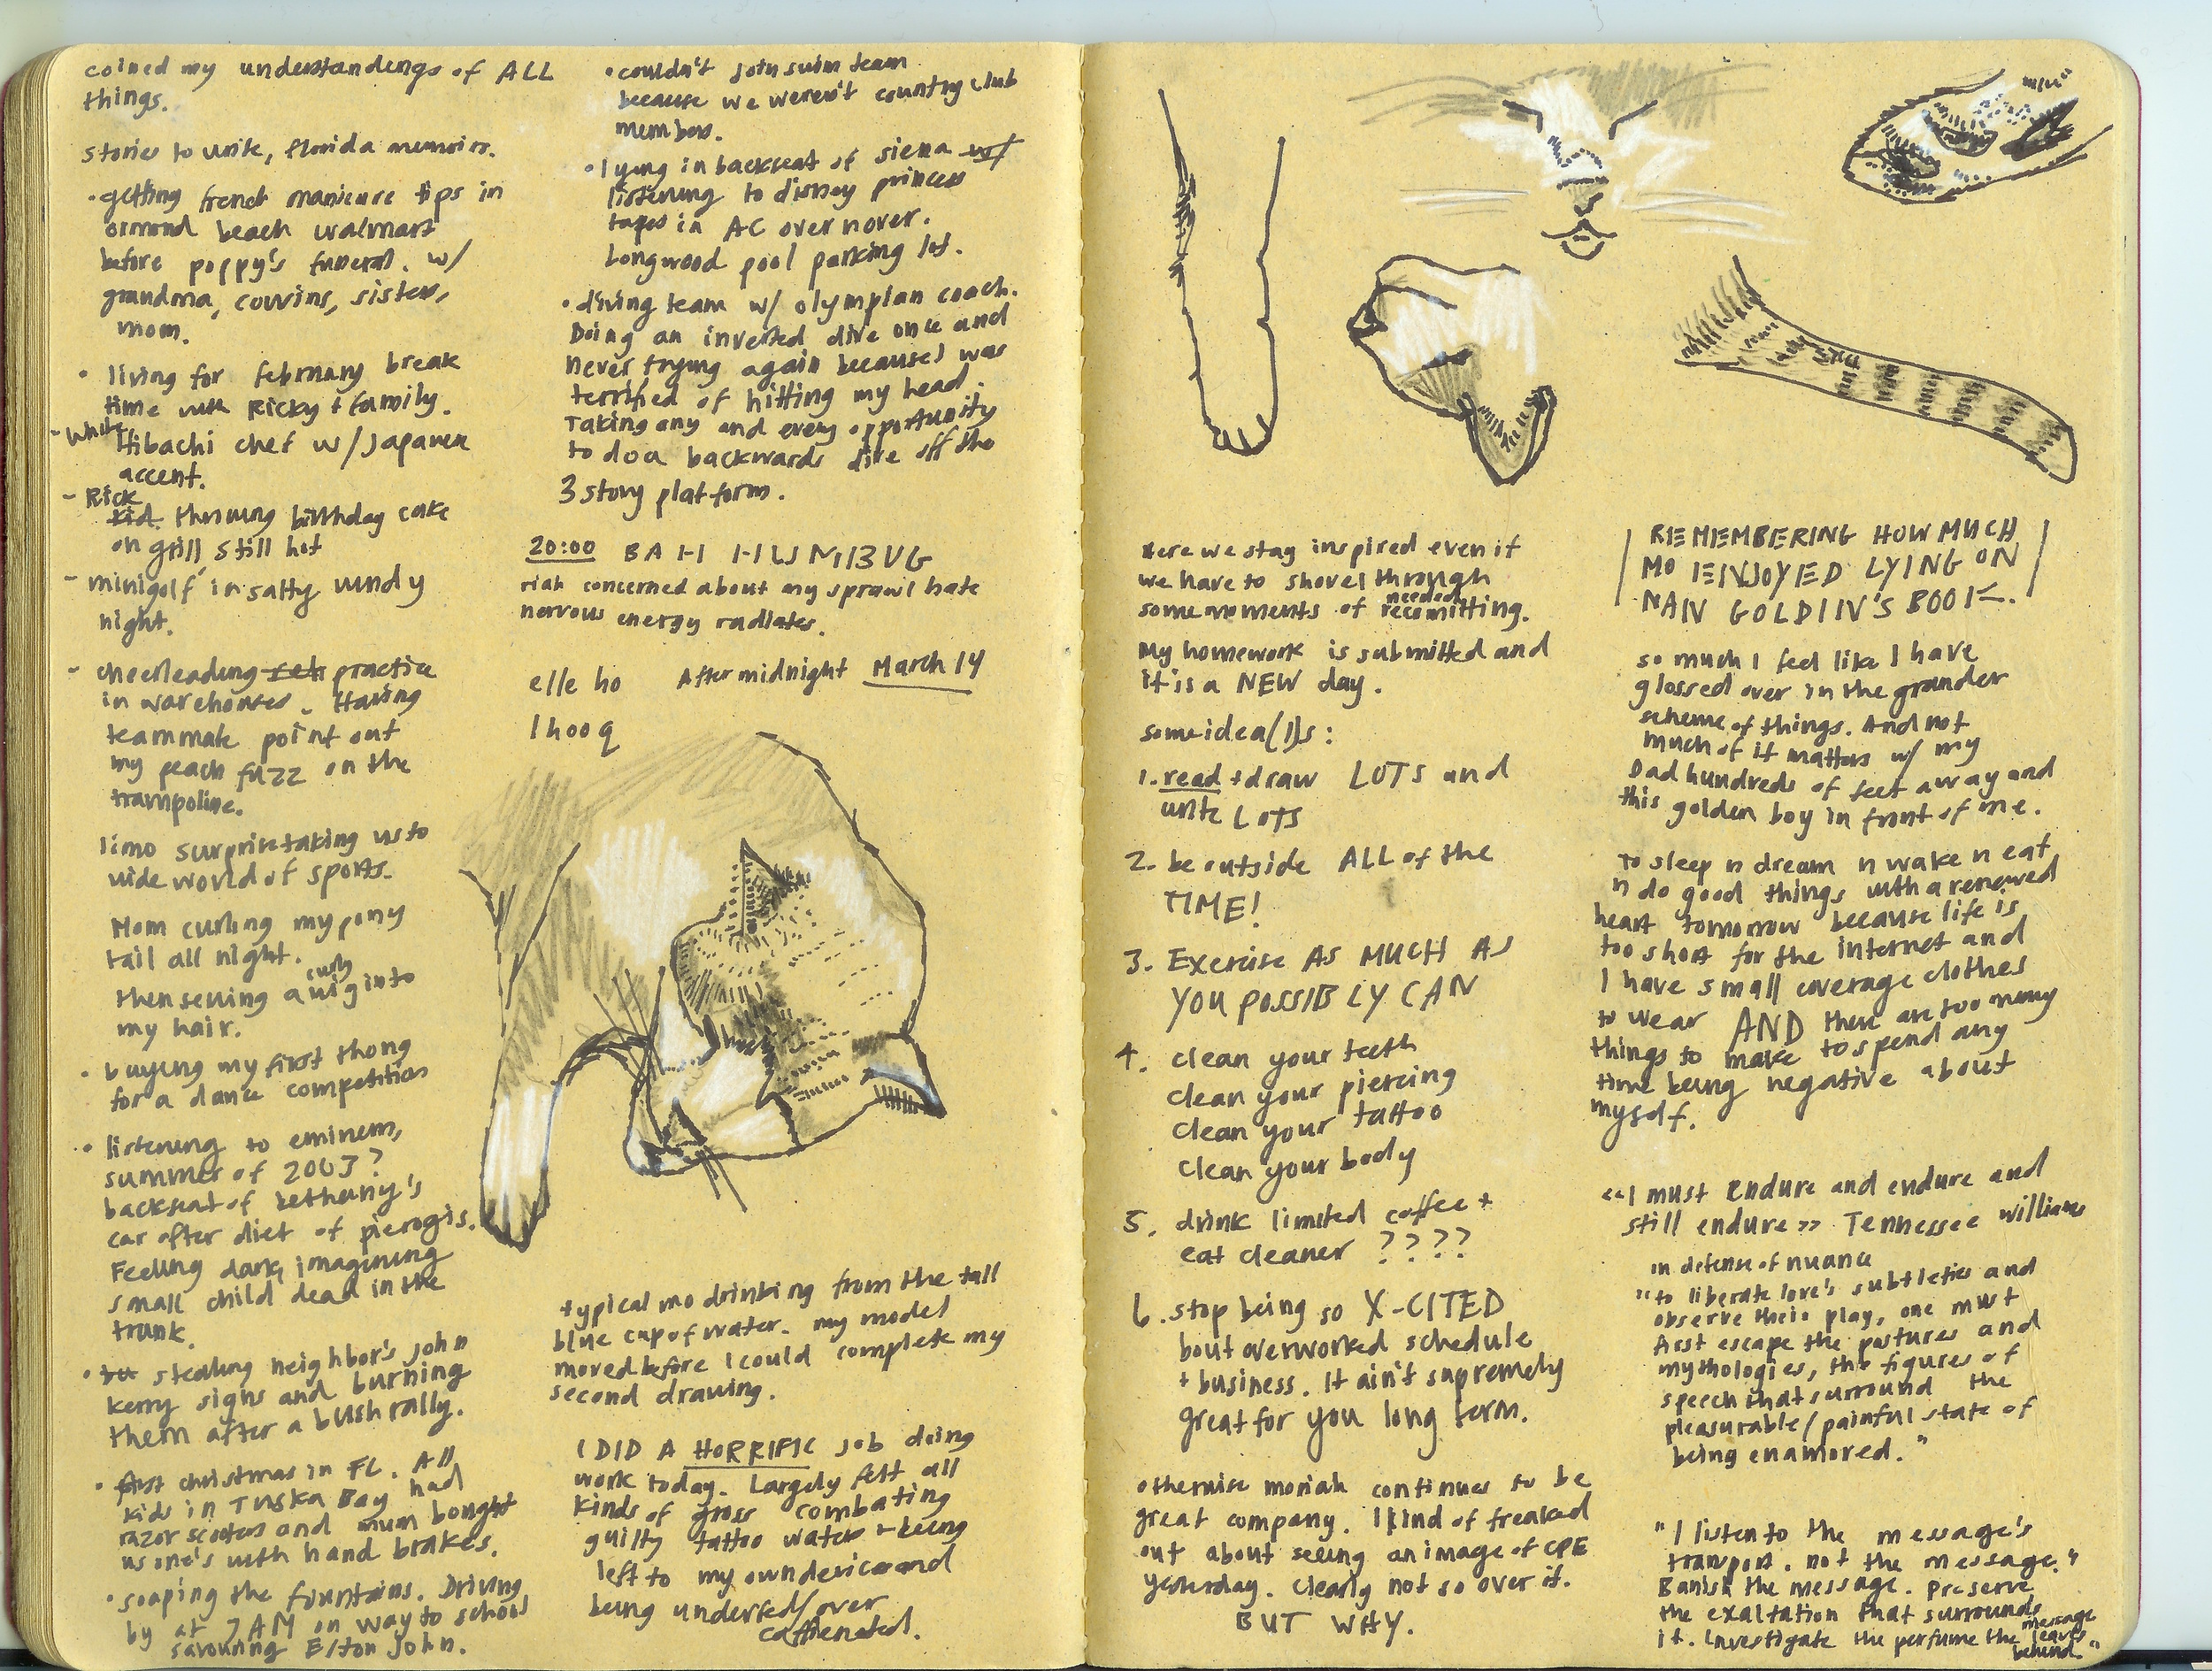 coined my understandings of ALL
things.
stories to write, florida memoirs.
• getting french manicure tips in
ormond beach walmart
before poppy's funeral. w/
grandma, cousins, sister,
mom.
• living for february break
time with Ricky + family.
- White
Hibachi chef w/ Japanese
accent.
- Rick
kid throwing birthday cake
on grill, still hot
- minigolf in salty windy
night.
- cheerleading practice
in warehouses. Having
teammate point out
my peach fuzz on the
trampoline.
limo surprise taking us to
wide world of sports.
Mom curling my pony
tail all night.
then sewing a curly wig into
my hair.
• buying my first thong
for a dance competition
• listening to eminem,
summer of 2003?
backseat of bethany's
car after diet of pierogis.
Feeling dark, imagining
small child dead in the
trunk.
• stealing neighbor's john
kerry signs and burning
them after a bush rally.
• first christmas in FL. All
kids in TUSKA Bay had
razor scooters and mum bought
us one's with hand brakes.
• soaping the fountains. Driving
by at 7AM on way to school
savouring Elton John.
• couldn't join swim team
because we weren't country club
members.
• lying in backseat of siena w/
listening to disney princess
tapes in AC over n over.
Longwood pool parking lot.
• diving team w/ olympian coach.
Doing an inverted dive once and
never trying again because I was
terrified of hitting my head.
Taking any and every opportunity
to do a backwards dive off the
3 story platform.
20:00 BAH HUMBUG
riah concerned about my sprawl hate
nervous energy radiates.
elle ho After midnight March 14
lhooq
typical mo drinking from the tall
blue cup of water. my model
moved before I could complete my
second drawing.
I DID A HORRIFIC job doing
work today. Largely felt all
kinds of gross combating
guilty tattoo water + being
left to my own device and
being underfed/over
caffienated.
Here we stay inspired even if
we have to shovel through
some moments of needed recomitting.
My homework is submitted and
it is a NEW day.
some idea(l)s:
1. read + draw LOTS and
write LOTS
2. be outside ALL of the
TIME!
3. Exercise AS MUCH AS
YOU POSSIBLY CAN
4. clean your teeth
clean your piercing
clean your tattoo
clean your body
5. drink limited coffee +
eat cleaner ????
6. stop being so X-CITED
bout overworked schedule
+ business. It ain't supremely
great for you long term.
otherwise moriah continues to be
great company. I kind of freaked
out about seeing an image of CPE
yesterday. Clearly not so over it.
BUT WHY.
REMEMBERING HOW MUCH
MO ENJOYED LYING ON
NAN GOLDIN'S BOOK.
so much I feel like I have
glossed over in the grander
scheme of things. And not
much of it matters w/ my
Dad hundreds of feet away and
this golden boy in front of me.
To sleep n dream n wake n eat
n do good things with a renewed
heart tomorrow because life is
too short for the internet and
I have small coverage clothes
to wear AND there are too many
things to make to spend any
time being negative about
myself.
"I must endure and endure and
still endure" Tennessee williams
in defense of nuance
"to liberate love's subtleties and
observe their play, one must
first escape the postures and
mythologies, the figures of
speech that surround the
pleasurable/painful state of
being enamored."
"I listen to the message's
transport. not the message."
Banish the message. Preserve
the exaltation that surrounds
it. Investigate the perfume the message
leaves
behind."